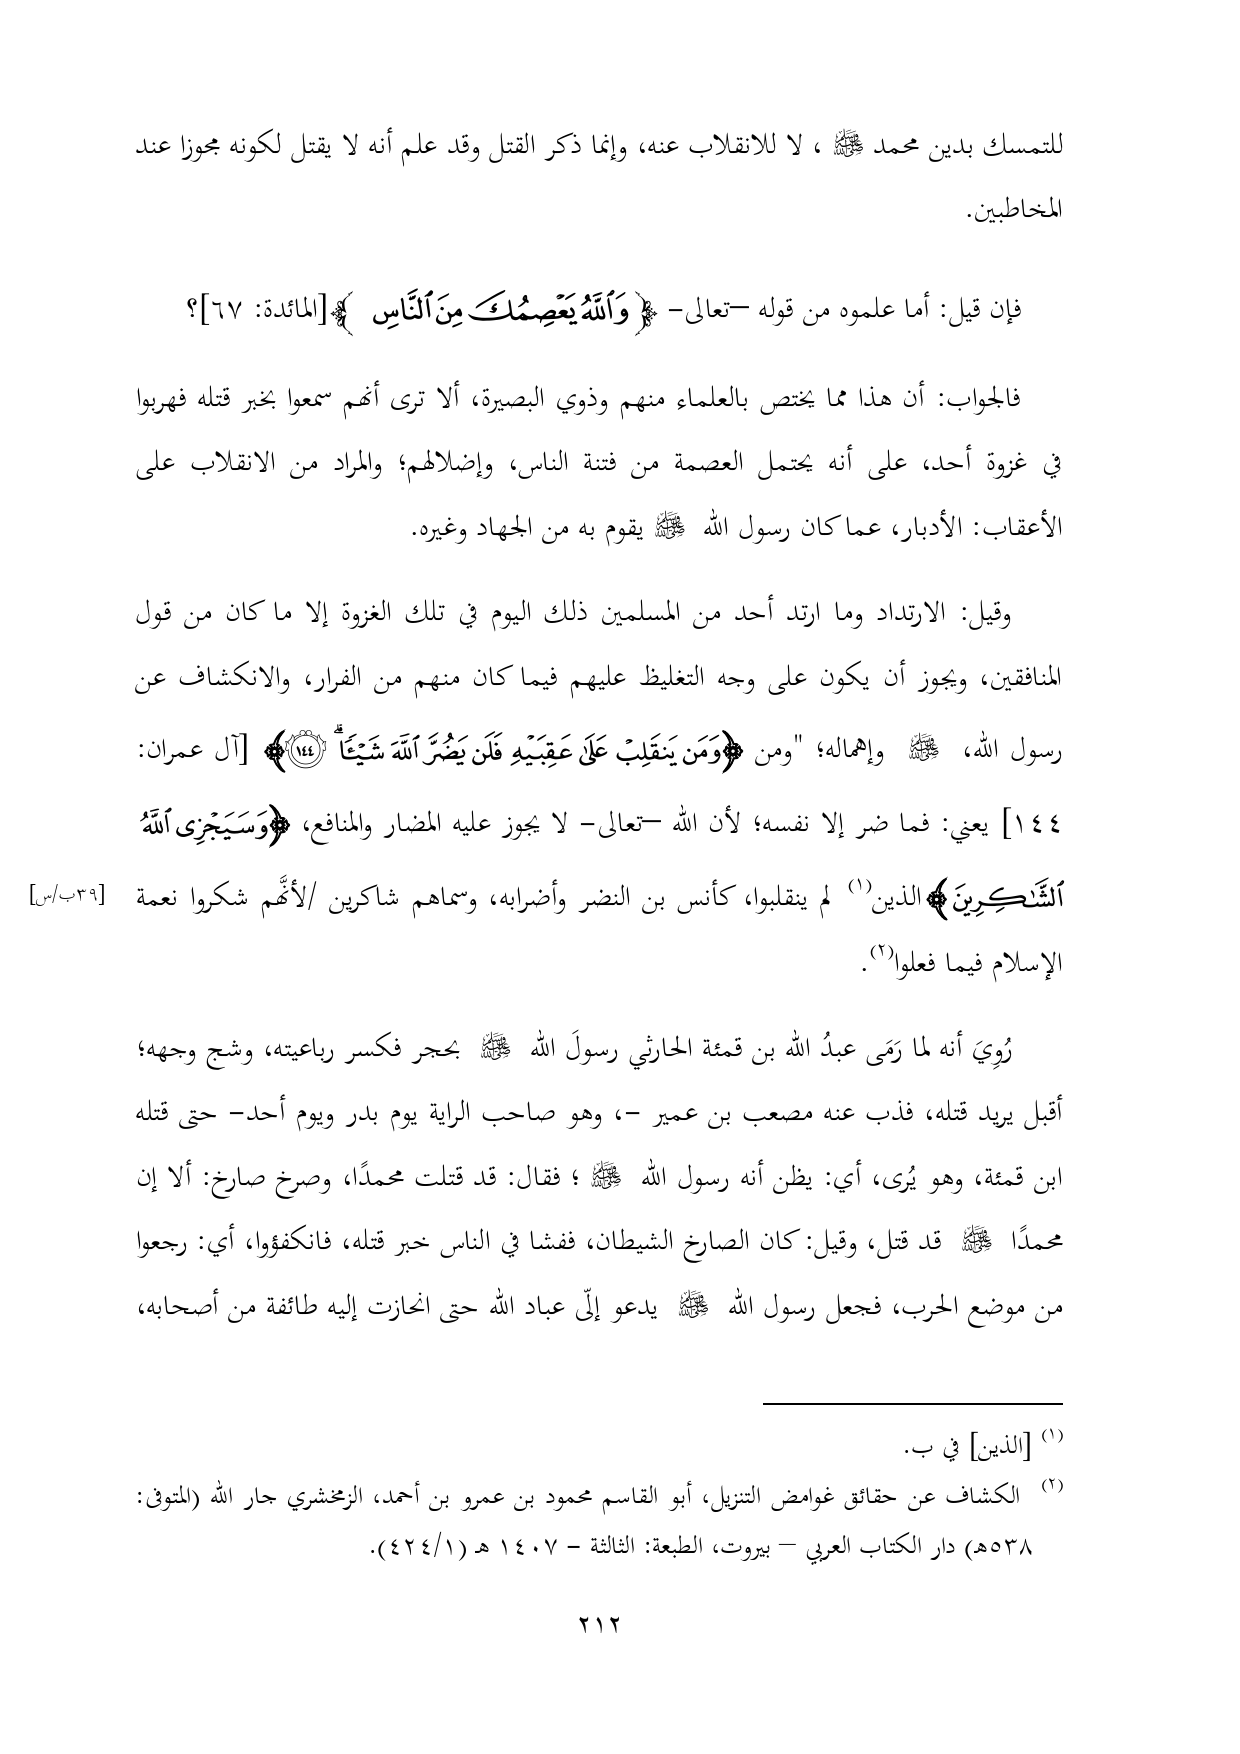 للتمسك بدين محمد ﷺ ، لا للانقلاب عنه، وإنما ذكر القتل وقد علم أنه لا يقتل لكونه مجوزا عند
المخاطبين.
فإن قيل: أما علموه من قوله –تعالى- ﴿ وَٱللَّهُ يَعۡصِمُكَ مِنَ ٱلنَّاسِ ﴾[المائدة: ٦٧]؟
فالجواب: أن هذا مما يختص بالعلماء منهم وذوي البصيرة، ألا ترى أنهم سمعوا بخبر قتله فهربوا
في غزوة أحد، على أنه يحتمل العصمة من فتنة الناس، وإضلالهم؛ والمراد من الانقلاب على
الأعقاب: الأدبار، عما كان رسول الله ﷺ يقوم به من الجهاد وغيره.
وقيل: الارتداد وما ارتد أحد من المسلمين ذلك اليوم في تلك الغزوة إلا ما كان من قول
المنافقين، ويجوز أن يكون على وجه التغليظ عليهم فيما كان منهم من الفرار، والانكشاف عن
رسول الله، ﷺ وإهماله؛ "ومن ﴿وَمَن يَنقَلِبۡ عَلَىٰ عَقِبَيۡهِ فَلَن يَضُرَّ ٱللَّهَ شَيۡـٔٗاۗ ١٤٤﴾ [آل عمران:
١٤٤] يعني: فما ضر إلا نفسه؛ لأن الله –تعالى- لا يجوز عليه المضار والمنافع، ﴿وَسَيَجۡزِي ٱللَّهُ
ٱلشَّـٰكِرِينَ﴾ الذين(١) لم ينقلبوا، كأنس بن النضر وأضرابه، وسماهم شاكرين /لأنَّهم شكروا نعمة [٣٩ب/س]
الإسلام فيما فعلوا(٢).
رُوِيَ أنه لما رَمَى عبدُ الله بن قمئة الحارثي رسولَ الله ﷺ بحجر فكسر رباعيته، وشج وجهه؛
أقبل يريد قتله، فذب عنه مصعب بن عمير -، وهو صاحب الراية يوم بدر ويوم أحد- حتى قتله
ابن قمئة، وهو يُرى، أي: يظن أنه رسول الله ﷺ ؛ فقال: قد قتلت محمدًا، وصرخ صارخ: ألا إن
محمدًا ﷺ قد قتل، وقيل: كان الصارخ الشيطان، ففشا في الناس خبر قتله، فانكفؤوا، أي: رجعوا
من موضع الحرب، فجعل رسول الله ﷺ يدعو إلّى عباد الله حتى انحازت إليه طائفة من أصحابه،
(١) [الذين] في ب.
(٢) الكشاف عن حقائق غوامض التنزيل، أبو القاسم محمود بن عمرو بن أحمد، الزمخشري جار الله (المتوفى:
٥٣٨هـ) دار الكتاب العربي – بيروت، الطبعة: الثالثة - ١٤٠٧ هـ (٤٢٤/١).
٢١٢